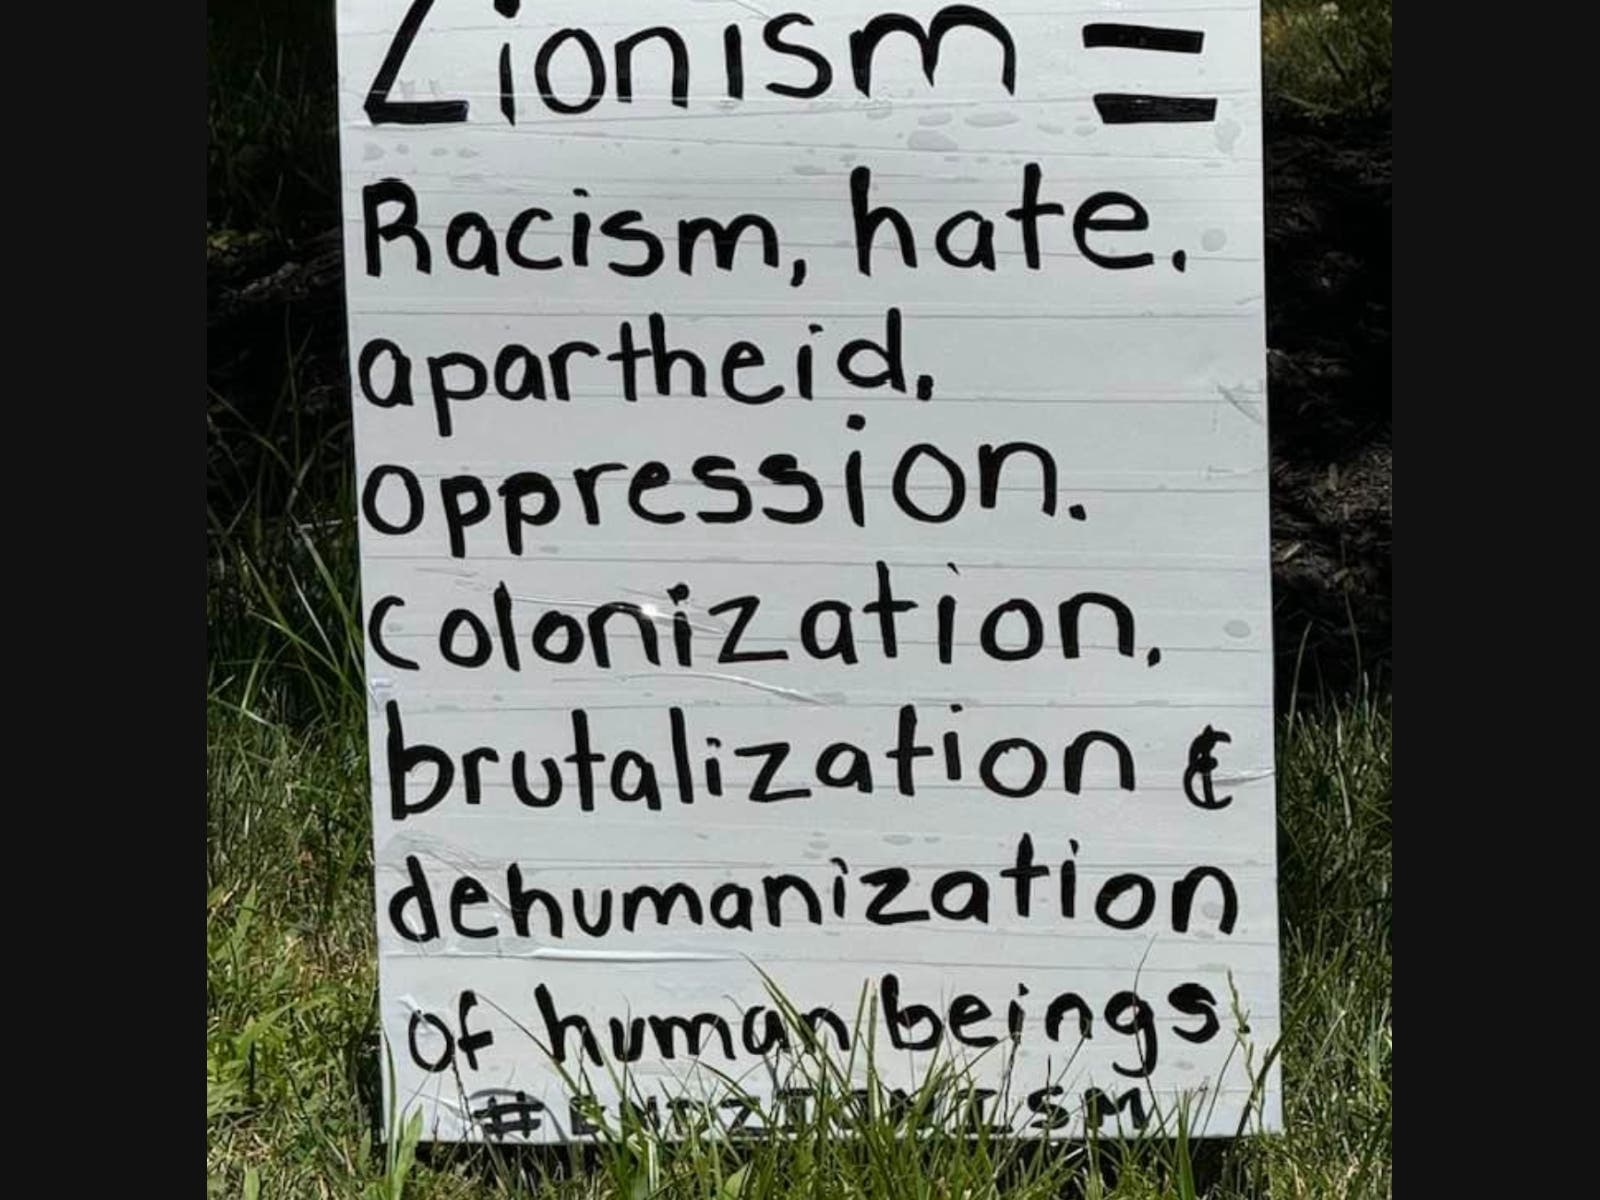 Zionism =
Racism, hate.
apartheid.
oppression.
colonization.
brutalization &
dehumanization
of human beings.
#ENDZIONISM